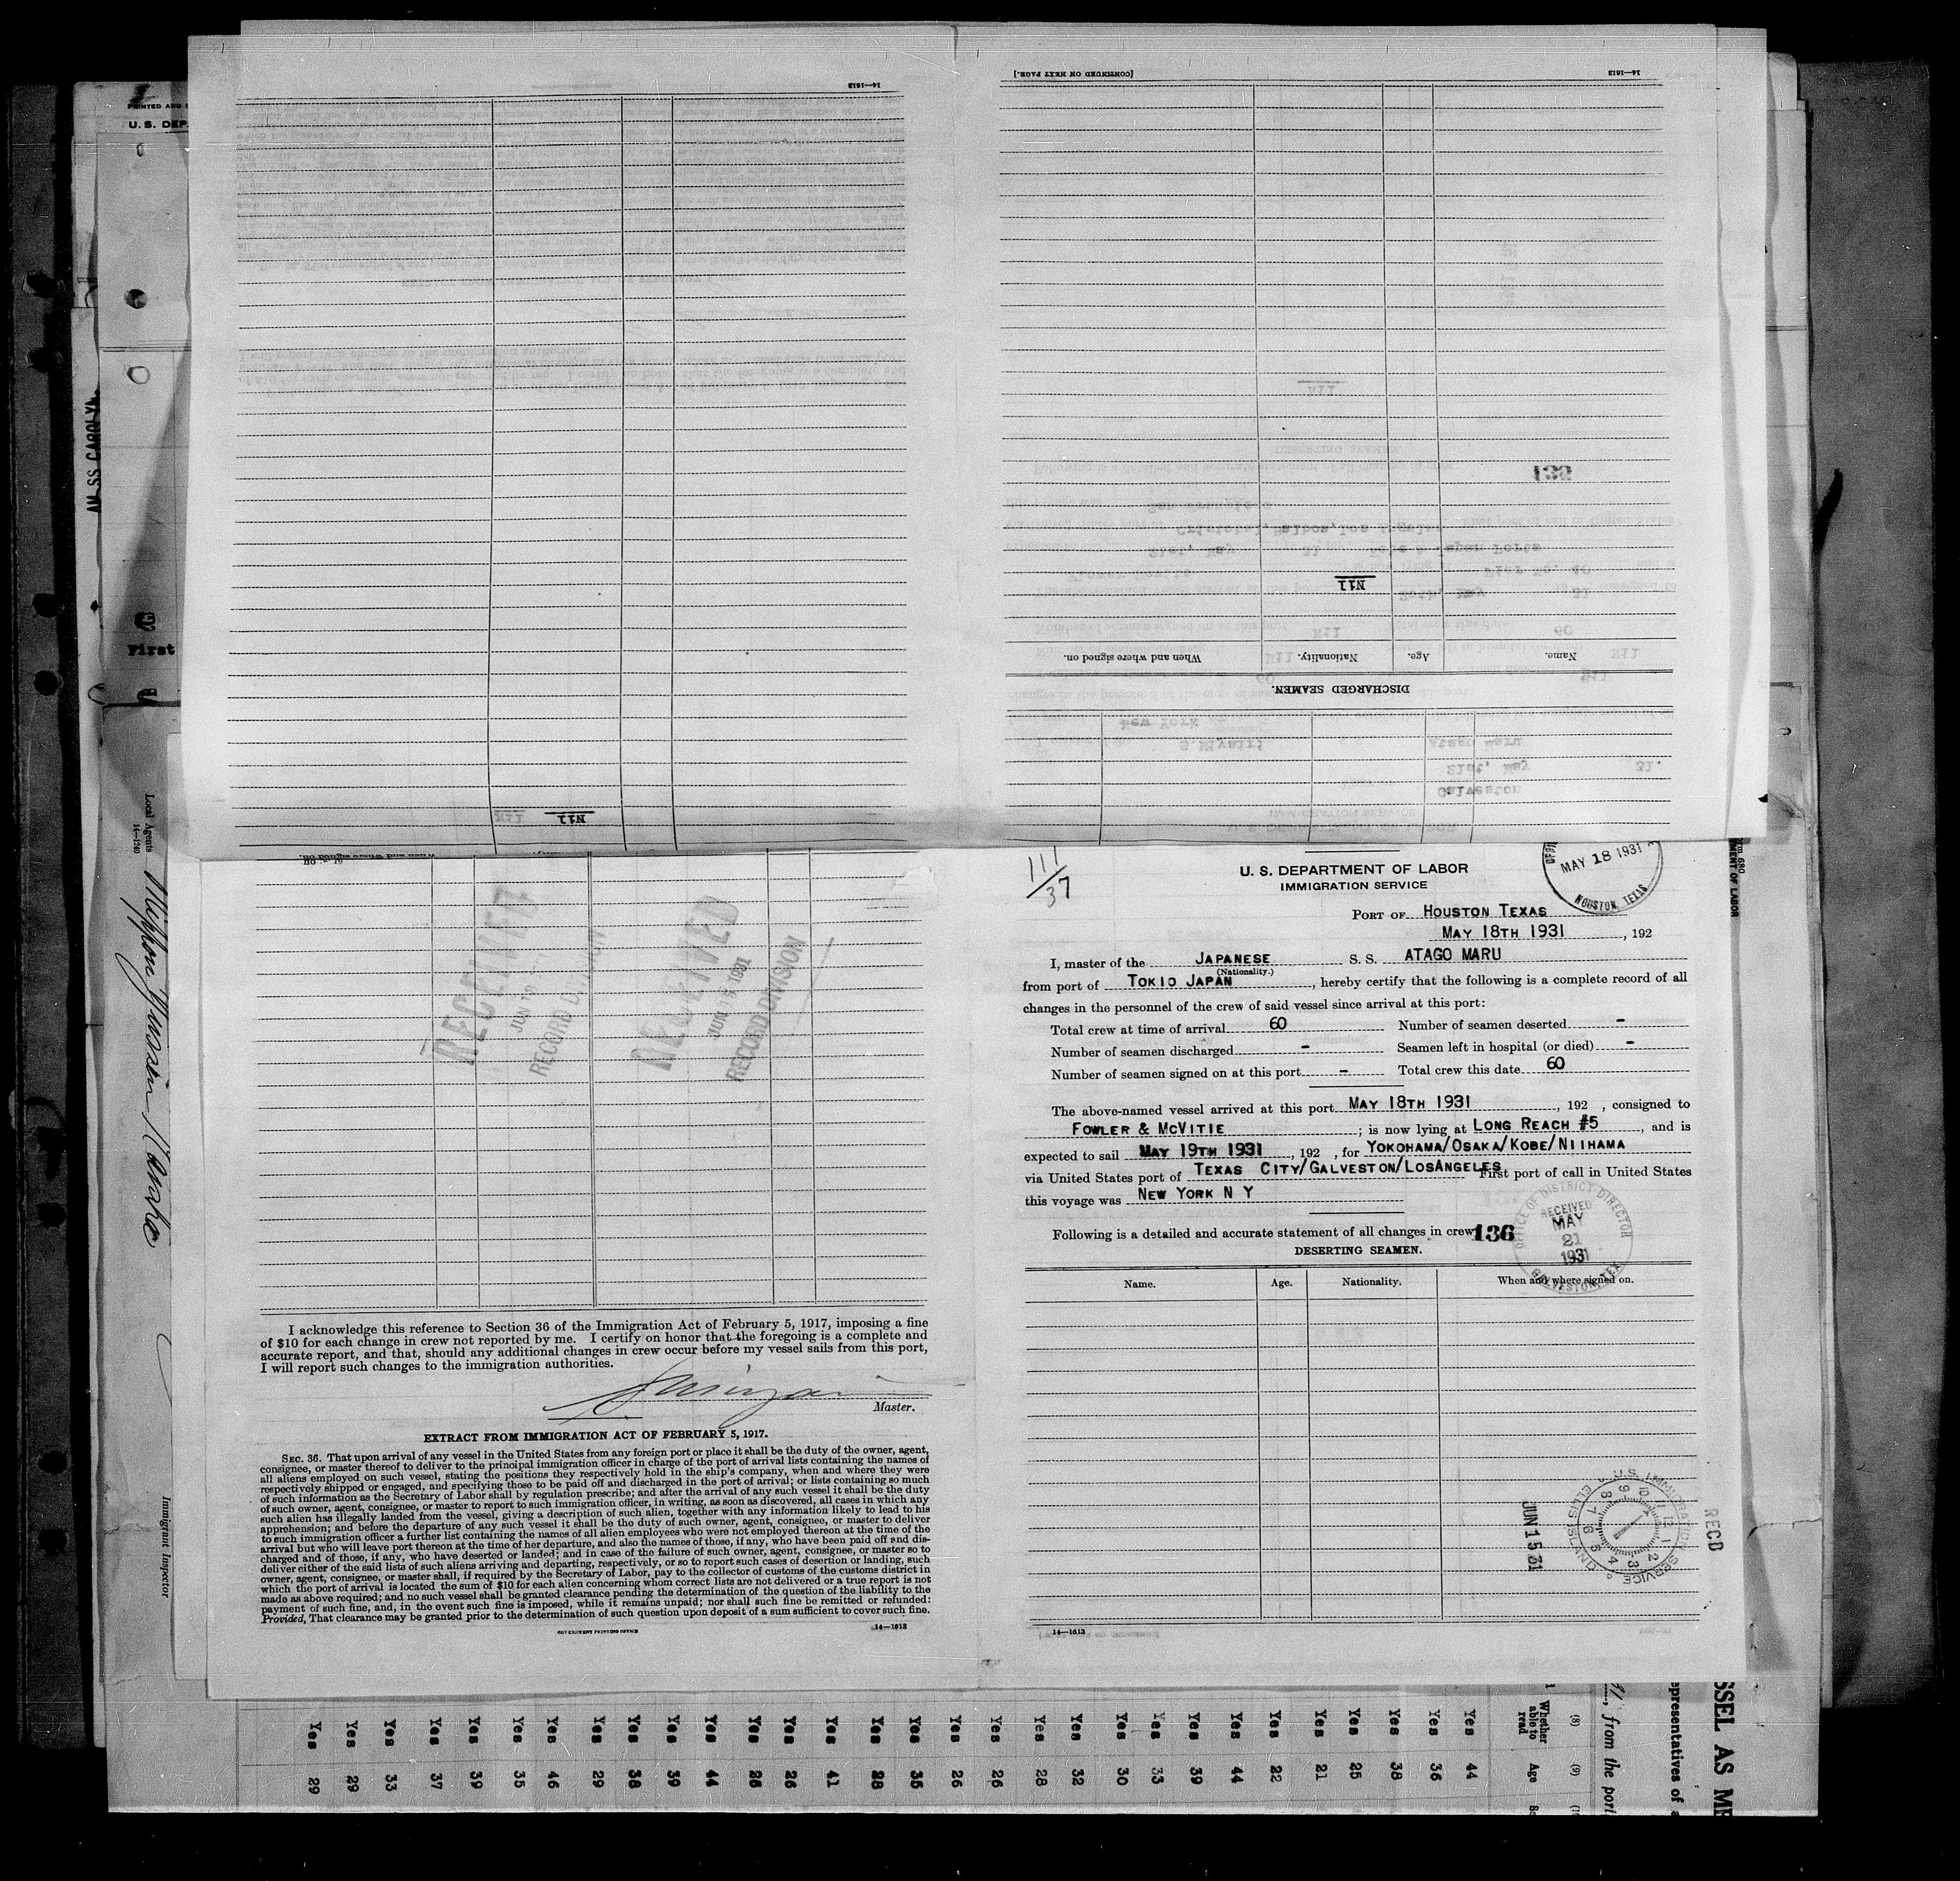 14—1613
[CONTINUED ON NEXT PAGE.]
14—1613
Nil
Name.
Age.
Nationality.
When and where signed on.
DISCHARGED SEAMEN.
Nil
U. S. DEP
AM SS CAROLYN.
First
Local Agents
14—1240
Immigrant Inspector
RECEIVED
JUN 19
RECORD DIVISION
RECEIVED
JUN 1931
RECORD DIVISION
I acknowledge this reference to Section 36 of the Immigration Act of February 5, 1917, imposing a fine
of $10 for each change in crew not reported by me. I certify on honor that the foregoing is a complete and
accurate report, and that, should any additional changes in crew occur before my vessel sails from this port,
I will report such changes to the immigration authorities.
Master.
EXTRACT FROM IMMIGRATION ACT OF FEBRUARY 5, 1917.
SEC. 36. That upon arrival of any vessel in the United States from any foreign port or place it shall be the duty of the owner, agent,
consignee, or master thereof to deliver to the principal immigration officer in charge of the port of arrival lists containing the names of
all aliens employed on such vessel, stating the positions they respectively hold in the ship's company, when and where they were
respectively shipped or engaged, and specifying those to be paid off and discharged in the port of arrival; or lists containing so much
of such information as the Secretary of Labor shall by regulation prescribe; and after the arrival of any such vessel it shall be the duty
of such owner, agent, consignee, or master to report to such immigration officer, in writing, as soon as discovered, all cases in which any
such alien has illegally landed from the vessel, giving a description of such alien, together with any information likely to lead to his
apprehension; and before the departure of any such vessel it shall be the duty of such owner, agent, consignee, or master to deliver
to such immigration officer a further list containing the names of all alien employees who were not employed thereon at the time of the
arrival but who will leave port thereon at the time of her departure, and also the names of those, if any, who have been paid off and dis-
charged and of those, if any, who have deserted or landed; and in case of the failure of such owner, agent, consignee, or master so to
deliver either of the said lists of such aliens arriving and departing, respectively, or so to report such cases of desertion or landing, such
owner, agent, consignee, or master shall, if required by the Secretary of Labor, pay to the collector of customs of the customs district in
which the port of arrival is located the sum of $10 for each alien concerning whom correct lists are not delivered or a true report is not
made as above required; and no such vessel shall be granted clearance pending the determination of the question of the liability to the
payment of such fine, and, in the event such fine is imposed, while it remains unpaid; nor shall such fine be remitted or refunded:
Provided, That clearance may be granted prior to the determination of such question upon deposit of a sum sufficient to cover such fine.
GOVERNMENT PRINTING OFFICE
14—1613
111/37
MAY 18 1931
HOUSTON, TEXAS
U. S. DEPARTMENT OF LABOR
IMMIGRATION SERVICE
PORT OF HOUSTON TEXAS
MAY 18TH 1931, 192
I, master of the JAPANESE S. S. ATAGO MARU
(Nationality.)
from port of TOKIO JAPAN, hereby certify that the following is a complete record of all
changes in the personnel of the crew of said vessel since arrival at this port:
Total crew at time of arrival 60 Number of seamen deserted -
Number of seamen discharged - Seamen left in hospital (or died) -
Number of seamen signed on at this port - Total crew this date 60
The above-named vessel arrived at this port MAY 18TH 1931, 192 , consigned to
FOWLER & MCVITIE; is now lying at LONG REACH #5, and is
expected to sail MAY 19TH 1931, 192 , for YOKOHAMA/OSAKA/KOBE/NIIHAMA
via United States port of TEXAS CITY/GALVESTON/LOSANGELES First port of call in United States
this voyage was NEW YORK N Y
Following is a detailed and accurate statement of all changes in crew 136
OFFICE OF DISTRICT DIRECTOR
RECEIVED
MAY
21
1931
GALVESTON, TEX
DESERTING SEAMEN.
Name. Age. Nationality. When and where signed on.
U.S. IMMIGRATION SERVICE
ELLIS ISLAND
JUN 15 31
RECD
14—1613
Yes Yes Yes Yes Yes Yes Yes Yes Yes Yes Yes Yes Yes Yes Yes Yes Yes Yes Yes Yes Yes Yes Yes Yes Yes Yes Yes Yes Yes Yes
Whether able to read
(8)
29 29 33 37 39 35 46 29 38 39 44 26 26 41 28 35 26 26 28 32 30 33 39 44 22 21 25 38 36 44
Age
(9)
, from the port
epresentatives of a
SSEL AS ME